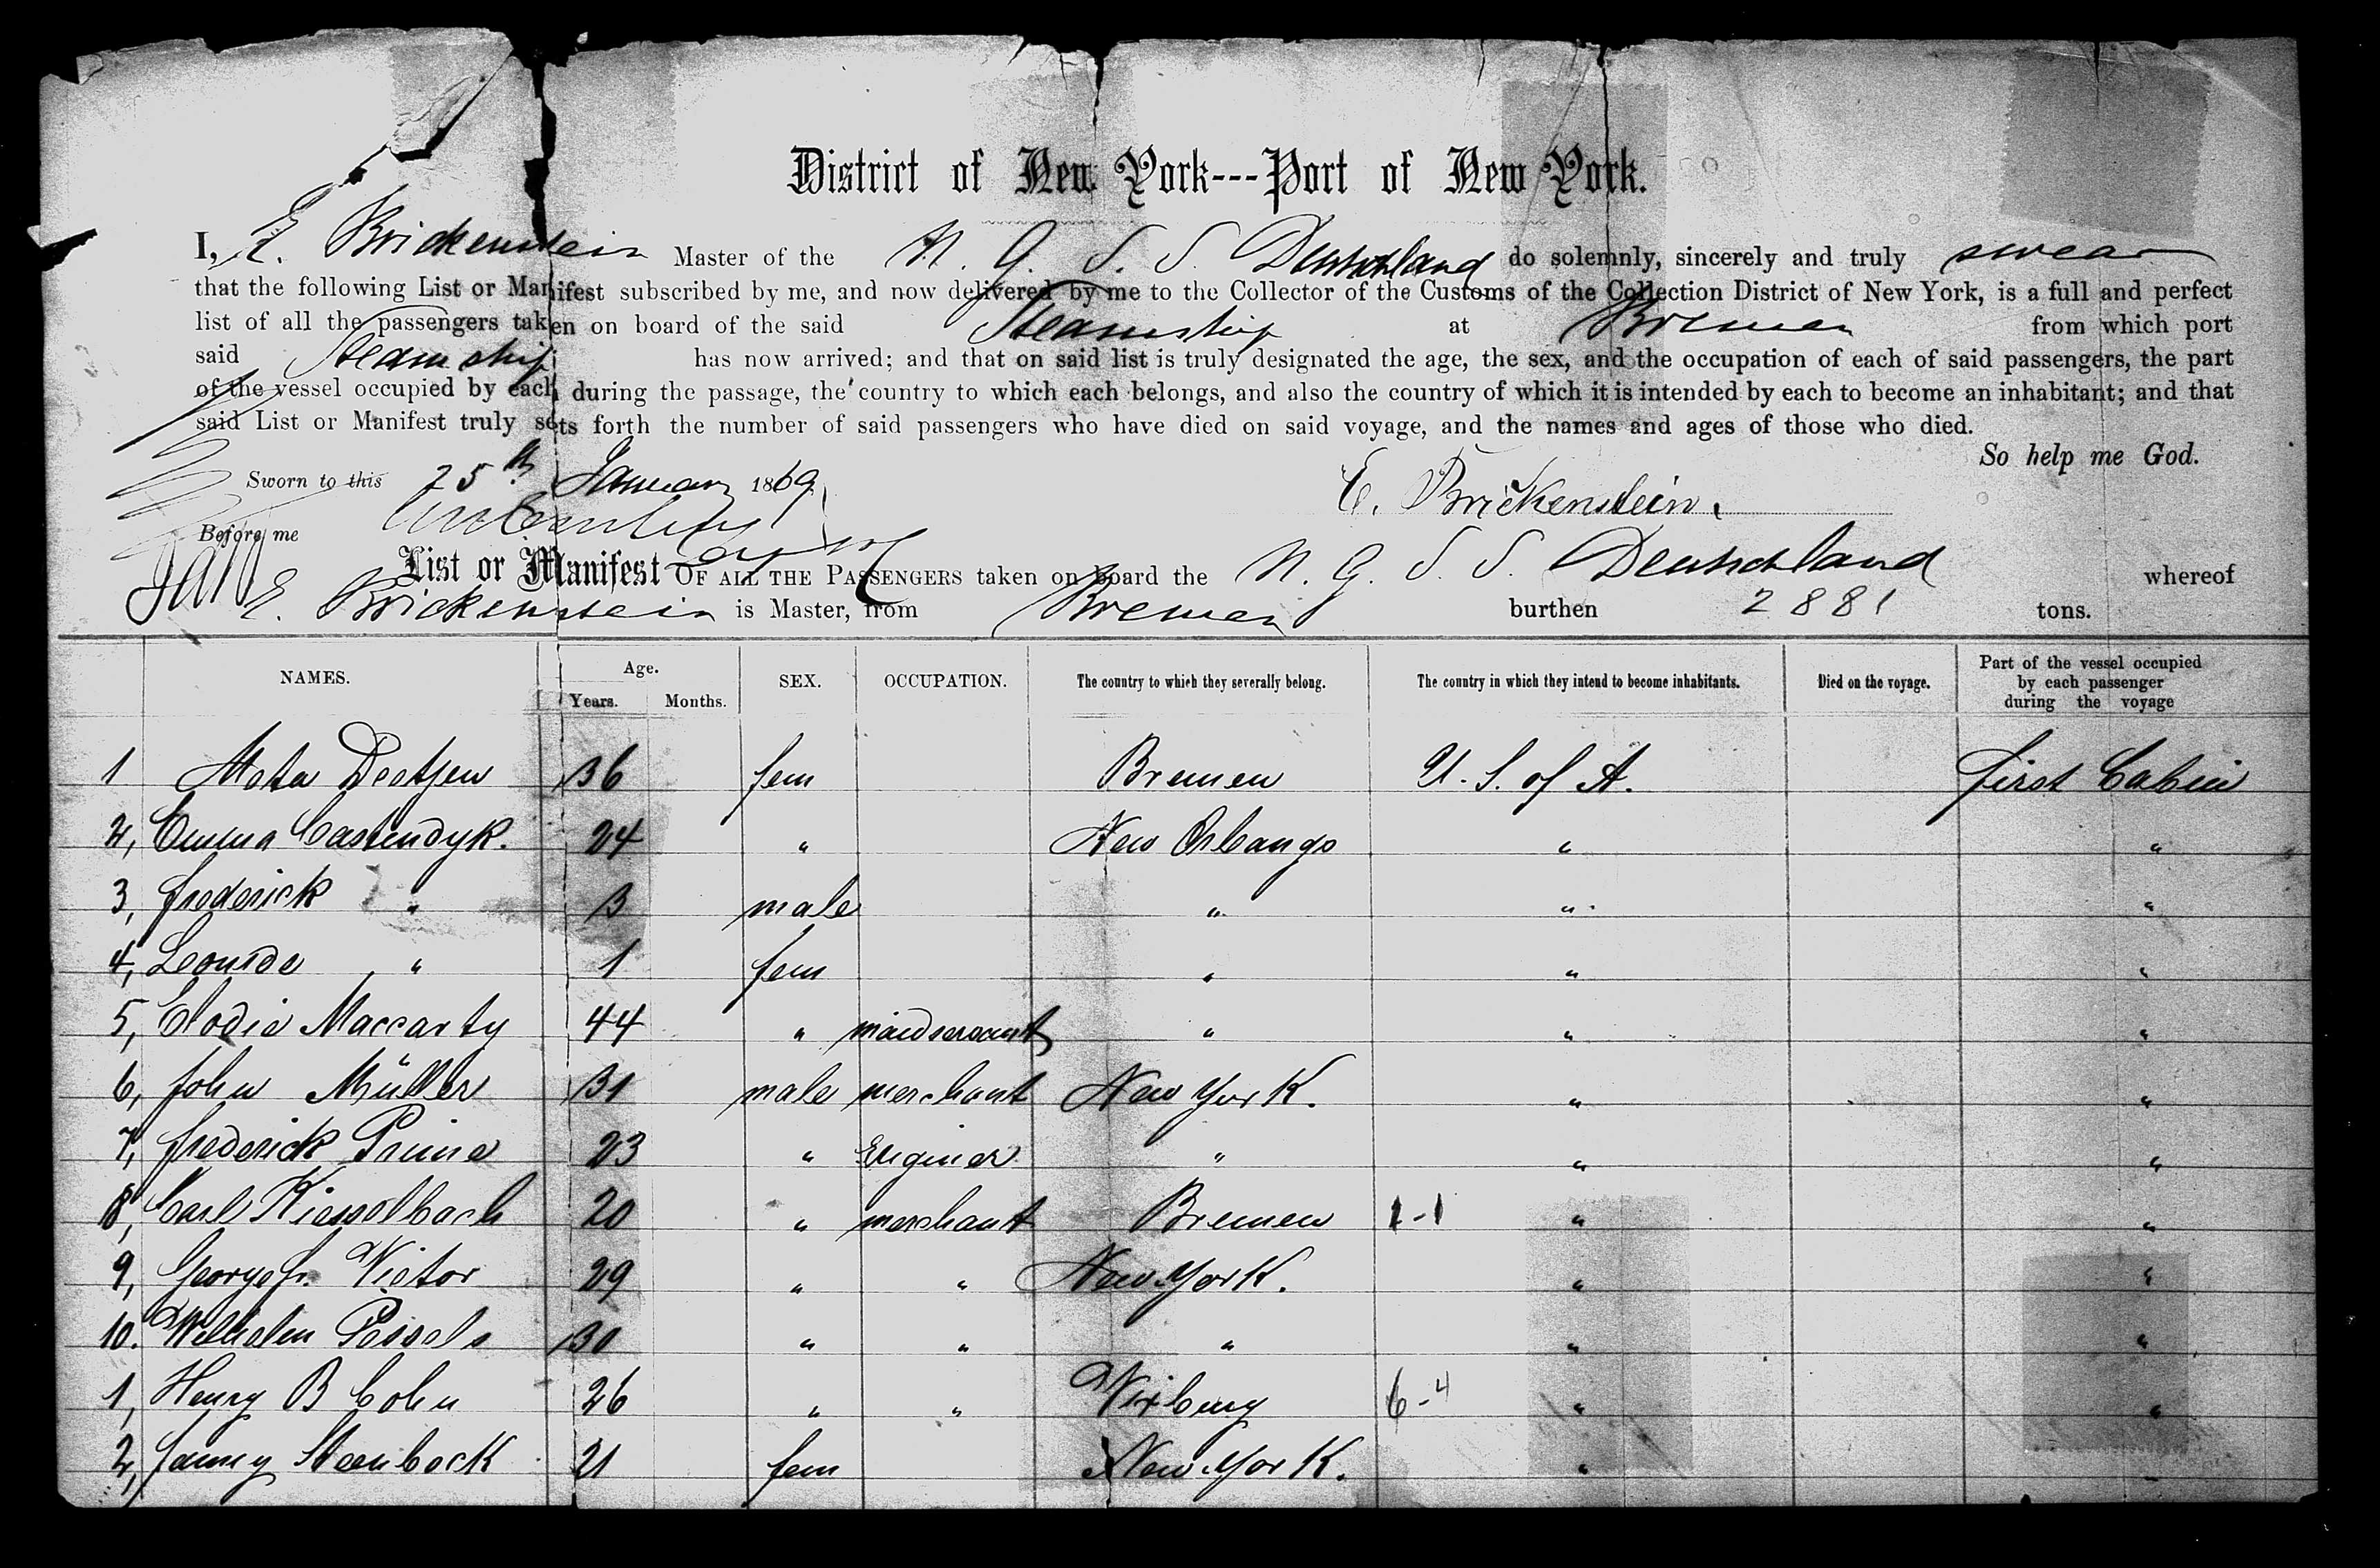 District of New York---Port of New York.
I, E. Brickenstein Master of the N. G. S. S. Deutschland do solemnly, sincerely and truly swear
that the following List or Manifest subscribed by me, and now delivered by me to the Collector of the Customs of the Collection District of New York, is a full and perfect
list of all the passengers taken on board of the said Steamship at Bremen from which port
said Steamship has now arrived; and that on said list is truly designated the age, the sex, and the occupation of each of said passengers, the part
of the vessel occupied by each during the passage, the country to which each belongs, and also the country of which it is intended by each to become an inhabitant; and that
said List or Manifest truly sets forth the number of said passengers who have died on said voyage, and the names and ages of those who died.
So help me God.
Sworn to this 25th January 1869
E. Brickenstein.
Before me
List or Manifest OF ALL THE PASSENGERS taken on board the N. G. S. S. Deutschland whereof
E. Brickenstein is Master, from Bremen burthen 2881 tons.
NAMES. Age. Years. Months. SEX. OCCUPATION. The country to which they severally belong. The country in which they intend to become inhabitants. Died on the voyage. Part of the vessel occupied by each passenger during the voyage
1 Meta Deetjen 36 fem Bremen U. S. of A. First Cabin
2, Emma Castendyk. 24 " New Orleans " "
3, Frederick " 3 male " " "
4, Leonide " 1 fem " " "
5, Elodie Maccarty 44 " maidservant " " "
6, John Müller 31 male merchant New York. " "
7, Frederick Prime 23 " Enginer " " "
8, Carl Kiesselbach 20 " merchant Bremen 1-1 " "
9, George Fr. Vietor 29 " " New York. " "
10. Wilhelm 30 " " " " "
1, Henry B Cohn 26 " " 6-4 " "
2, Fanny Steenbock 21 fem New York. " "